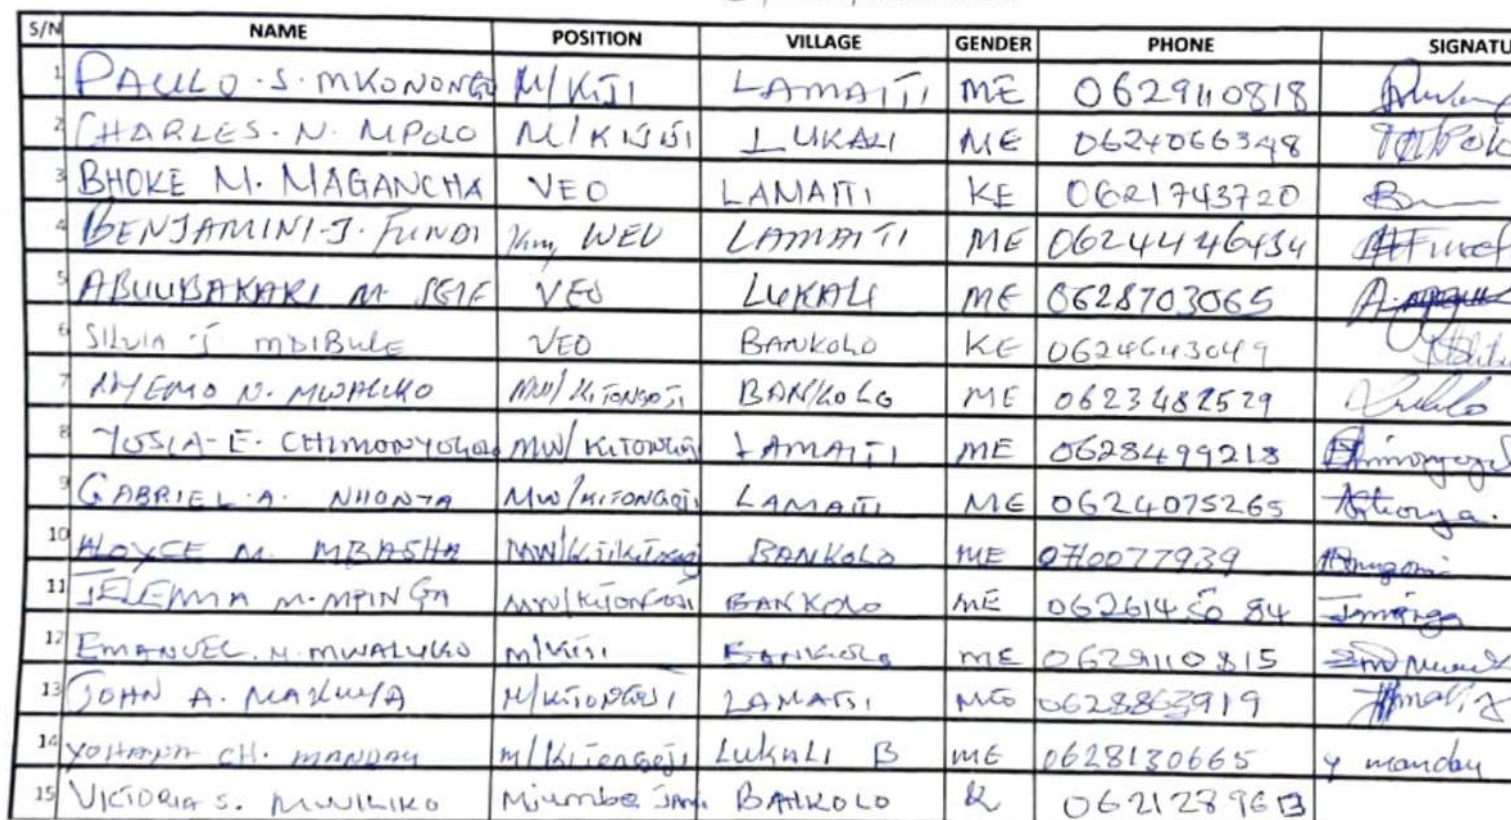 S/N NAME POSITION VILLAGE GENDER PHONE SIGNATU
1 PAULO .S. MKONONGO M/KIJI LAMAITI ME 0629110818
2 CHARLES. N. MPOLO M/KIJIJI LUKALI ME 0624066348
3 BHOKE M. MAGANCHA VEO LAMAITI KE 0621743720
4 BENJAMINI-J. FUNDI WEO LAMAITI ME 0624446434
5 ABUUBAKARI M SEIF VEO LUKALI ME 0628703065
6 SILVIA J MDIBULE VEO BANKOLO KE 0624643049
7 N. MWALUKO MW/KITONGOJI BANKOLO ME 0623482529
8 YOSIA-E. MW/KITONGOJI LAMAITI ME 0628499218
9 GABRIEL.A. NHONYA MW/KITONGOJI LAMAITI ME 0624075265
10 ALOYCE M. MBASHA BANKOLO ME 0710077939
11 JELEMIA M. MPINGA MW/KITONGOJI BANKOLO ME 0626145084
12 EMANUEL. N. MWALUKO M/KIJI BANKOLO ME 0629110815
13 JOHN A. M/KITONGOJI LAMAITI ME 0628863919
14 YOHANA CH. MANDAY M/KITONGOJI LUKALI B ME 0628130665 Y manday
15 VICTORIA S. MWILIKO Mjumbe BANKOLO K